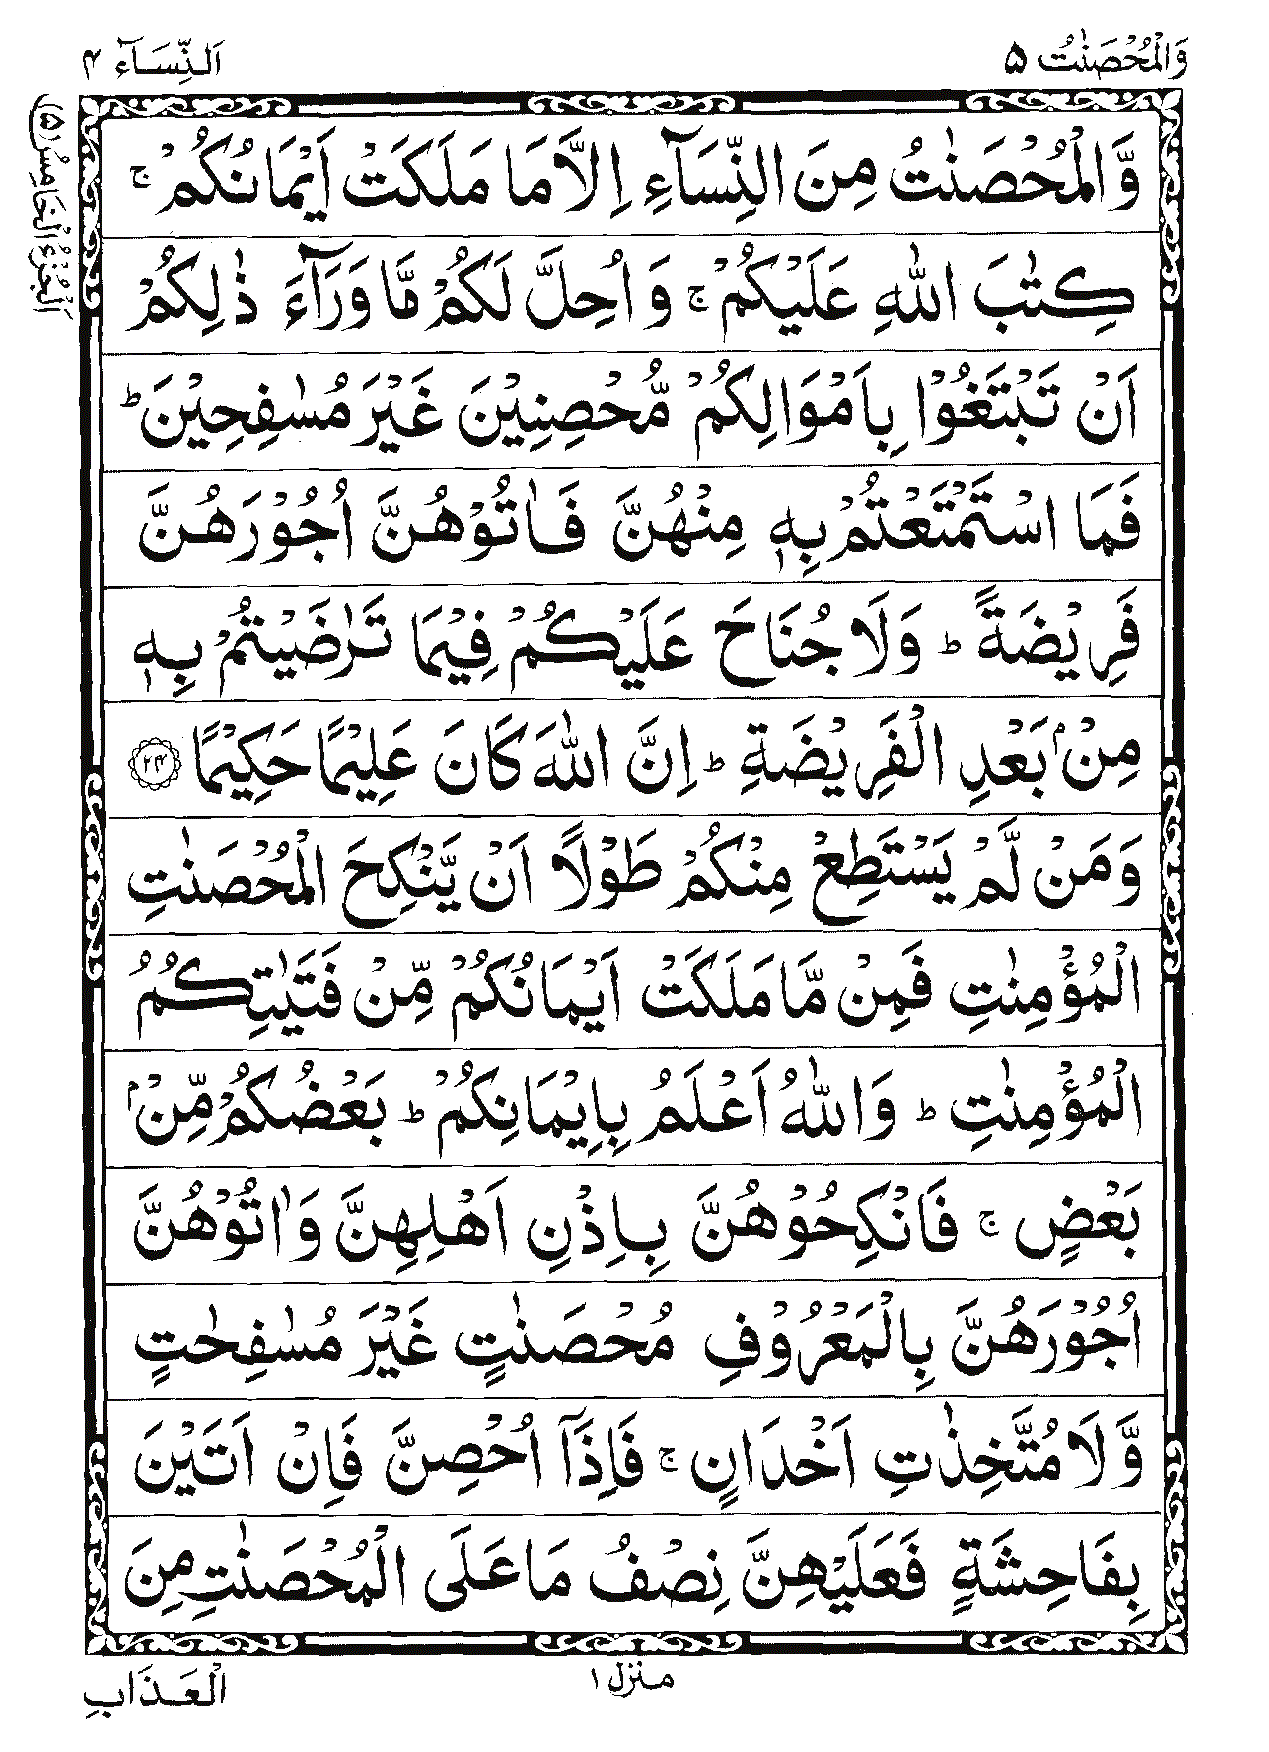 وَالْمُحْصَنٰتُ ۵
اَلنِّسَآء ۴
اَلْجُزْءُ الْخَامِسُ (۵)
وَّالْمُحْصَنٰتُ مِنَ النِّسَآءِ اِلَّا مَا مَلَكَتْ اَيْمَانُكُمْ ۚ
كِتٰبَ اللّٰهِ عَلَيْكُمْ ۚ وَ اُحِلَّ لَكُمْ مَّا وَرَآءَ ذٰلِكُمْ
اَنْ تَبْتَغُوْا بِاَمْوَالِكُمْ مُّحْصِنِيْنَ غَيْرَ مُسٰفِحِيْنَ ؕ
فَمَا اسْتَمْتَعْتُمْ بِهٖ مِنْهُنَّ فَاٰتُوْهُنَّ اُجُوْرَهُنَّ
فَرِيْضَةً ؕ وَلَا جُنَاحَ عَلَيْكُمْ فِيْمَا تَرٰضَيْتُمْ بِهٖ
مِنْۢ بَعْدِ الْفَرِيْضَةِ ؕ اِنَّ اللّٰهَ كَانَ عَلِيْمًا حَكِيْمًا ﴿۲۴﴾
وَمَنْ لَّمْ يَسْتَطِعْ مِنْكُمْ طَوْلًا اَنْ يَّنْكِحَ الْمُحْصَنٰتِ
الْمُؤْمِنٰتِ فَمِنْ مَّا مَلَكَتْ اَيْمَانُكُمْ مِّنْ فَتَيٰتِكُمُ
الْمُؤْمِنٰتِ ؕ وَاللّٰهُ اَعْلَمُ بِاِيْمَانِكُمْ ؕ بَعْضُكُمْ مِّنْۢ
بَعْضٍ ۚ فَانْكِحُوْهُنَّ بِاِذْنِ اَهْلِهِنَّ وَاٰتُوْهُنَّ
اُجُوْرَهُنَّ بِالْمَعْرُوْفِ مُحْصَنٰتٍ غَيْرَ مُسٰفِحٰتٍ
وَّلَا مُتَّخِذٰتِ اَخْدَانٍ ۚ فَاِذَآ اُحْصِنَّ فَاِنْ اَتَيْنَ
بِفَاحِشَةٍ فَعَلَيْهِنَّ نِصْفُ مَا عَلَى الْمُحْصَنٰتِ مِنَ
منزل ۱
الْعَذَابِ